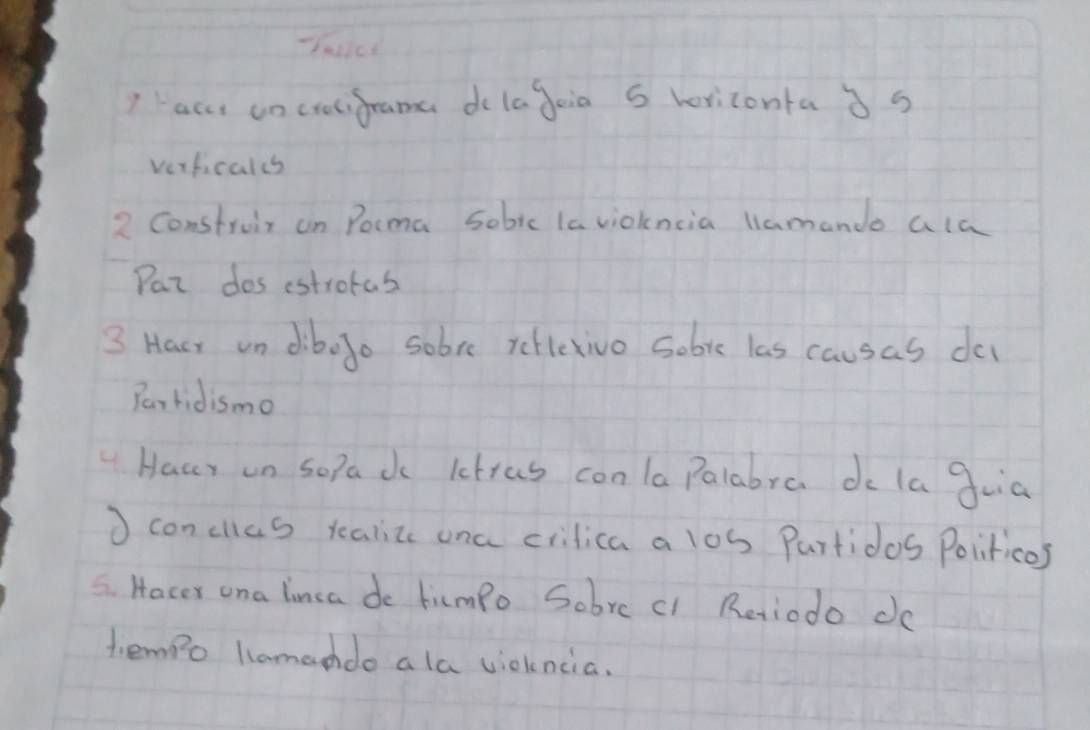 Taller
1 Hacer un crucigrama de la guia 5 horizonta y 5
verticales
2 Construir un Poema sobre la violencia llamando a la
Paz dos estrofas
3 Hacer un dibujo sobre reflexivo sobre las causas del
Partidismo
4 Hacer un sopa de letras con la Palabra de la guia
y con ellas realize una critica a los Partidos Politicos
5. Hacer una linea de tiempo sobre el Periodo de
tiempo llamando a la violencia.